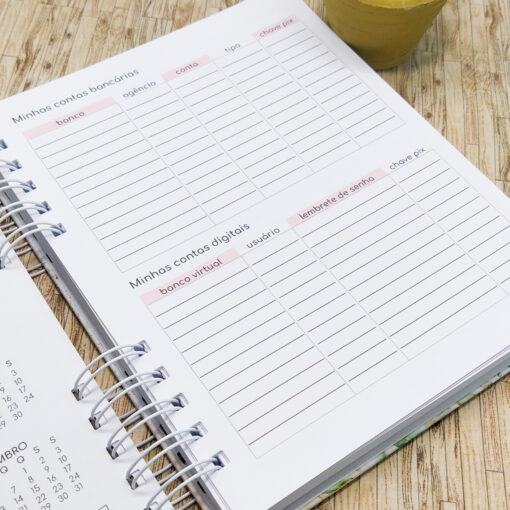 Minhas contas bancárias
banco agência conta tipo chave pix
Minhas contas digitais
banco virtual usuário lembrete de senha chave pix
S
3
10
17
24
MBRO
Q Q S S
1 2 3